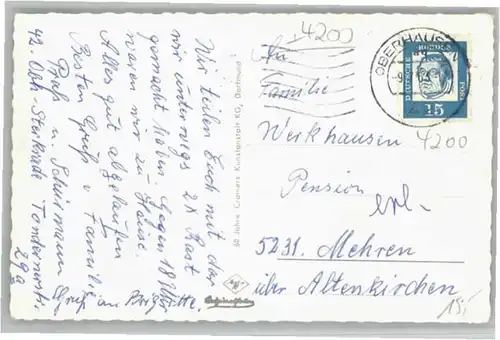 Wir teilen Euch mit das
wir unterwegs 2x Rast
gemacht haben. Gegen 18 Uhr
waren wir zu Hause.
Alles gut abgelaufen
Besten Gruß v Familie
Schürmann
42. Obh-Sterkrade
29a
Gruß an Brigitte.
60 Jahre Cramers Kunstanstalt KG, Dortmund
4200
OBERHAUS
DEUTSCHE BUNDESPOST
15
An
Familie
Werkhausen
4200
Pension
erl.
5231. Mehren
über Altenkirchen
15,-